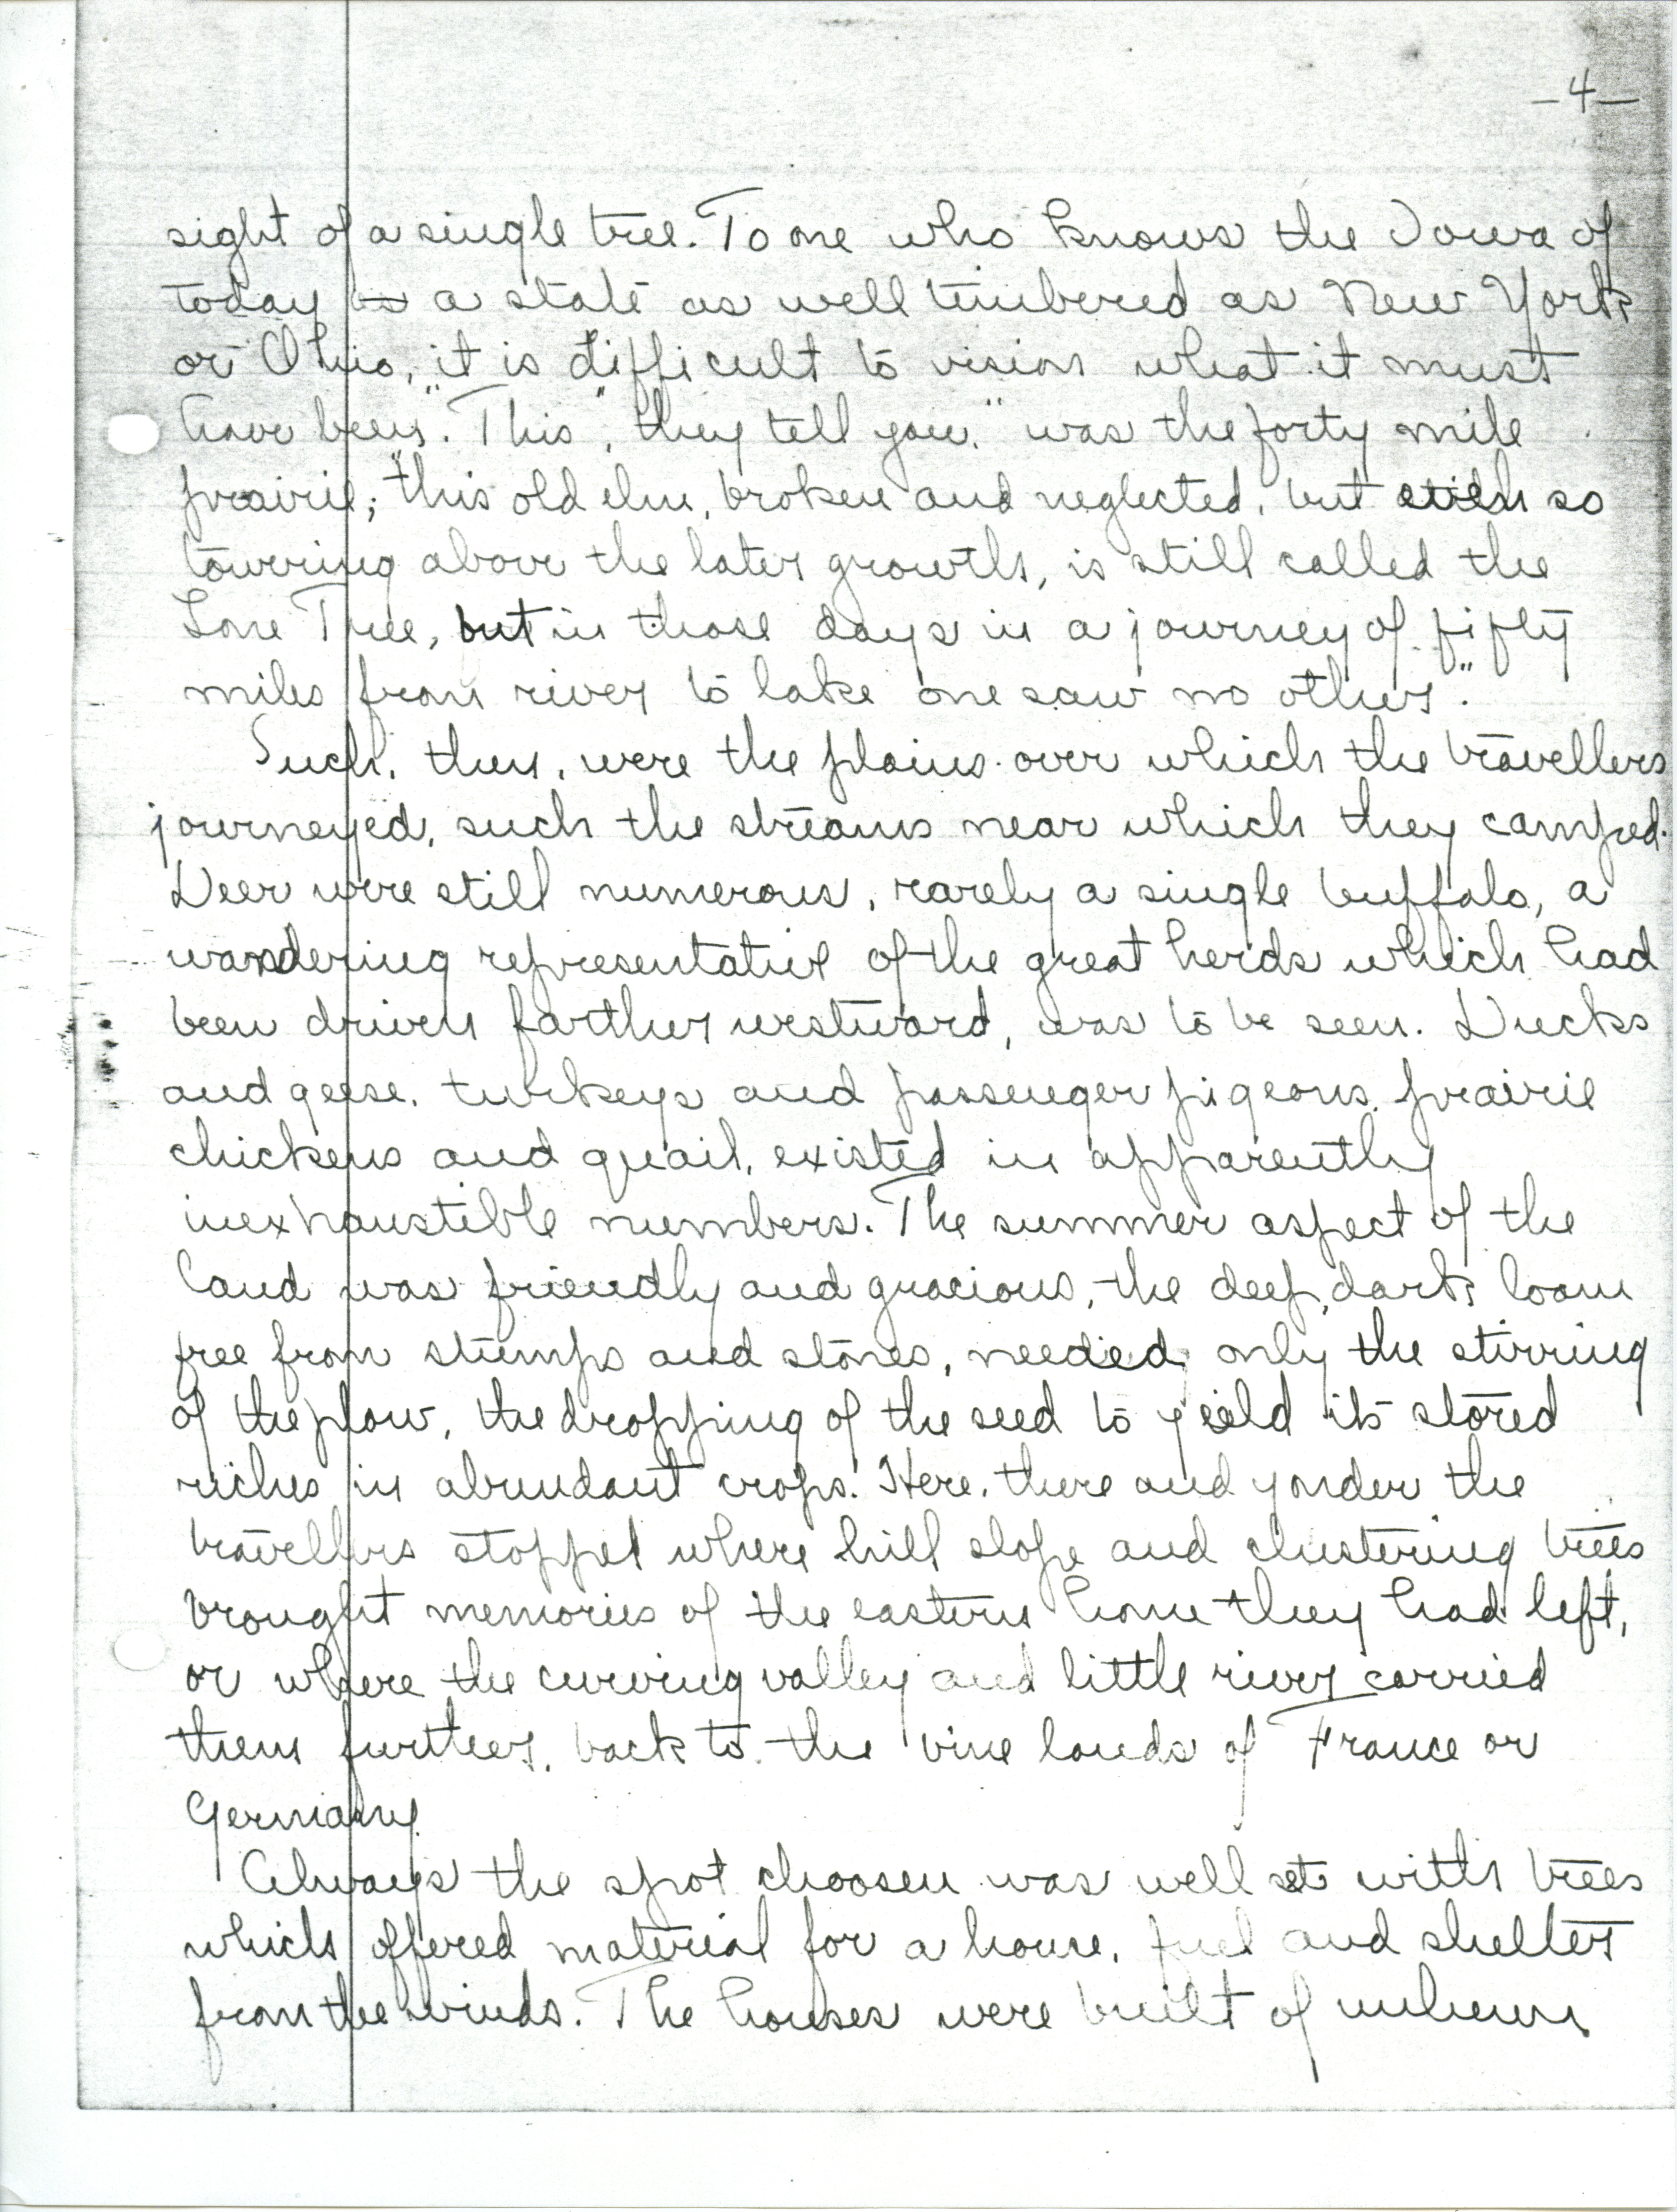 -4-
sight of a single tree. To one who knows the Iowa of
today as a state as well timbered as New York
or Ohio, it is difficult to vision what it must
have been. "This", they tell you, "was the forty mile
prairie; this old elm, broken and neglected, but even so
towering above the later growth, is still called the
Lone Tree, but in those days in a journey of fifty
miles from river to lake one saw no other".
Such, then, were the plains over which the travellers
journeyed, such the streams near which they camped.
Deer were still numerous, rarely a single buffalo, a
wandering representative of the great herds which had
been driven farther westward, was to be seen. Ducks
and geese, turkeys and passenger pigeons, prairie
chickens and quail, existed in apparently
inexhaustible numbers. The summer aspect of the
land was friendly and gracious, the deep, dark loam
free from stumps and stones, needed only the stirring
of the plow, the dropping of the seed to yield its stored
riches in abundant crops. Here, there and yonder the
travellers stopped where hill slope and clustering trees
brought memories of the eastern home they had left,
or where the curving valley and little river carried
them further, back to the vine lands of France or
Germany.
Always the spot choosen was well set with trees
which offered material for a house, fuel and shelter
from the winds. The houses were built of unhewn